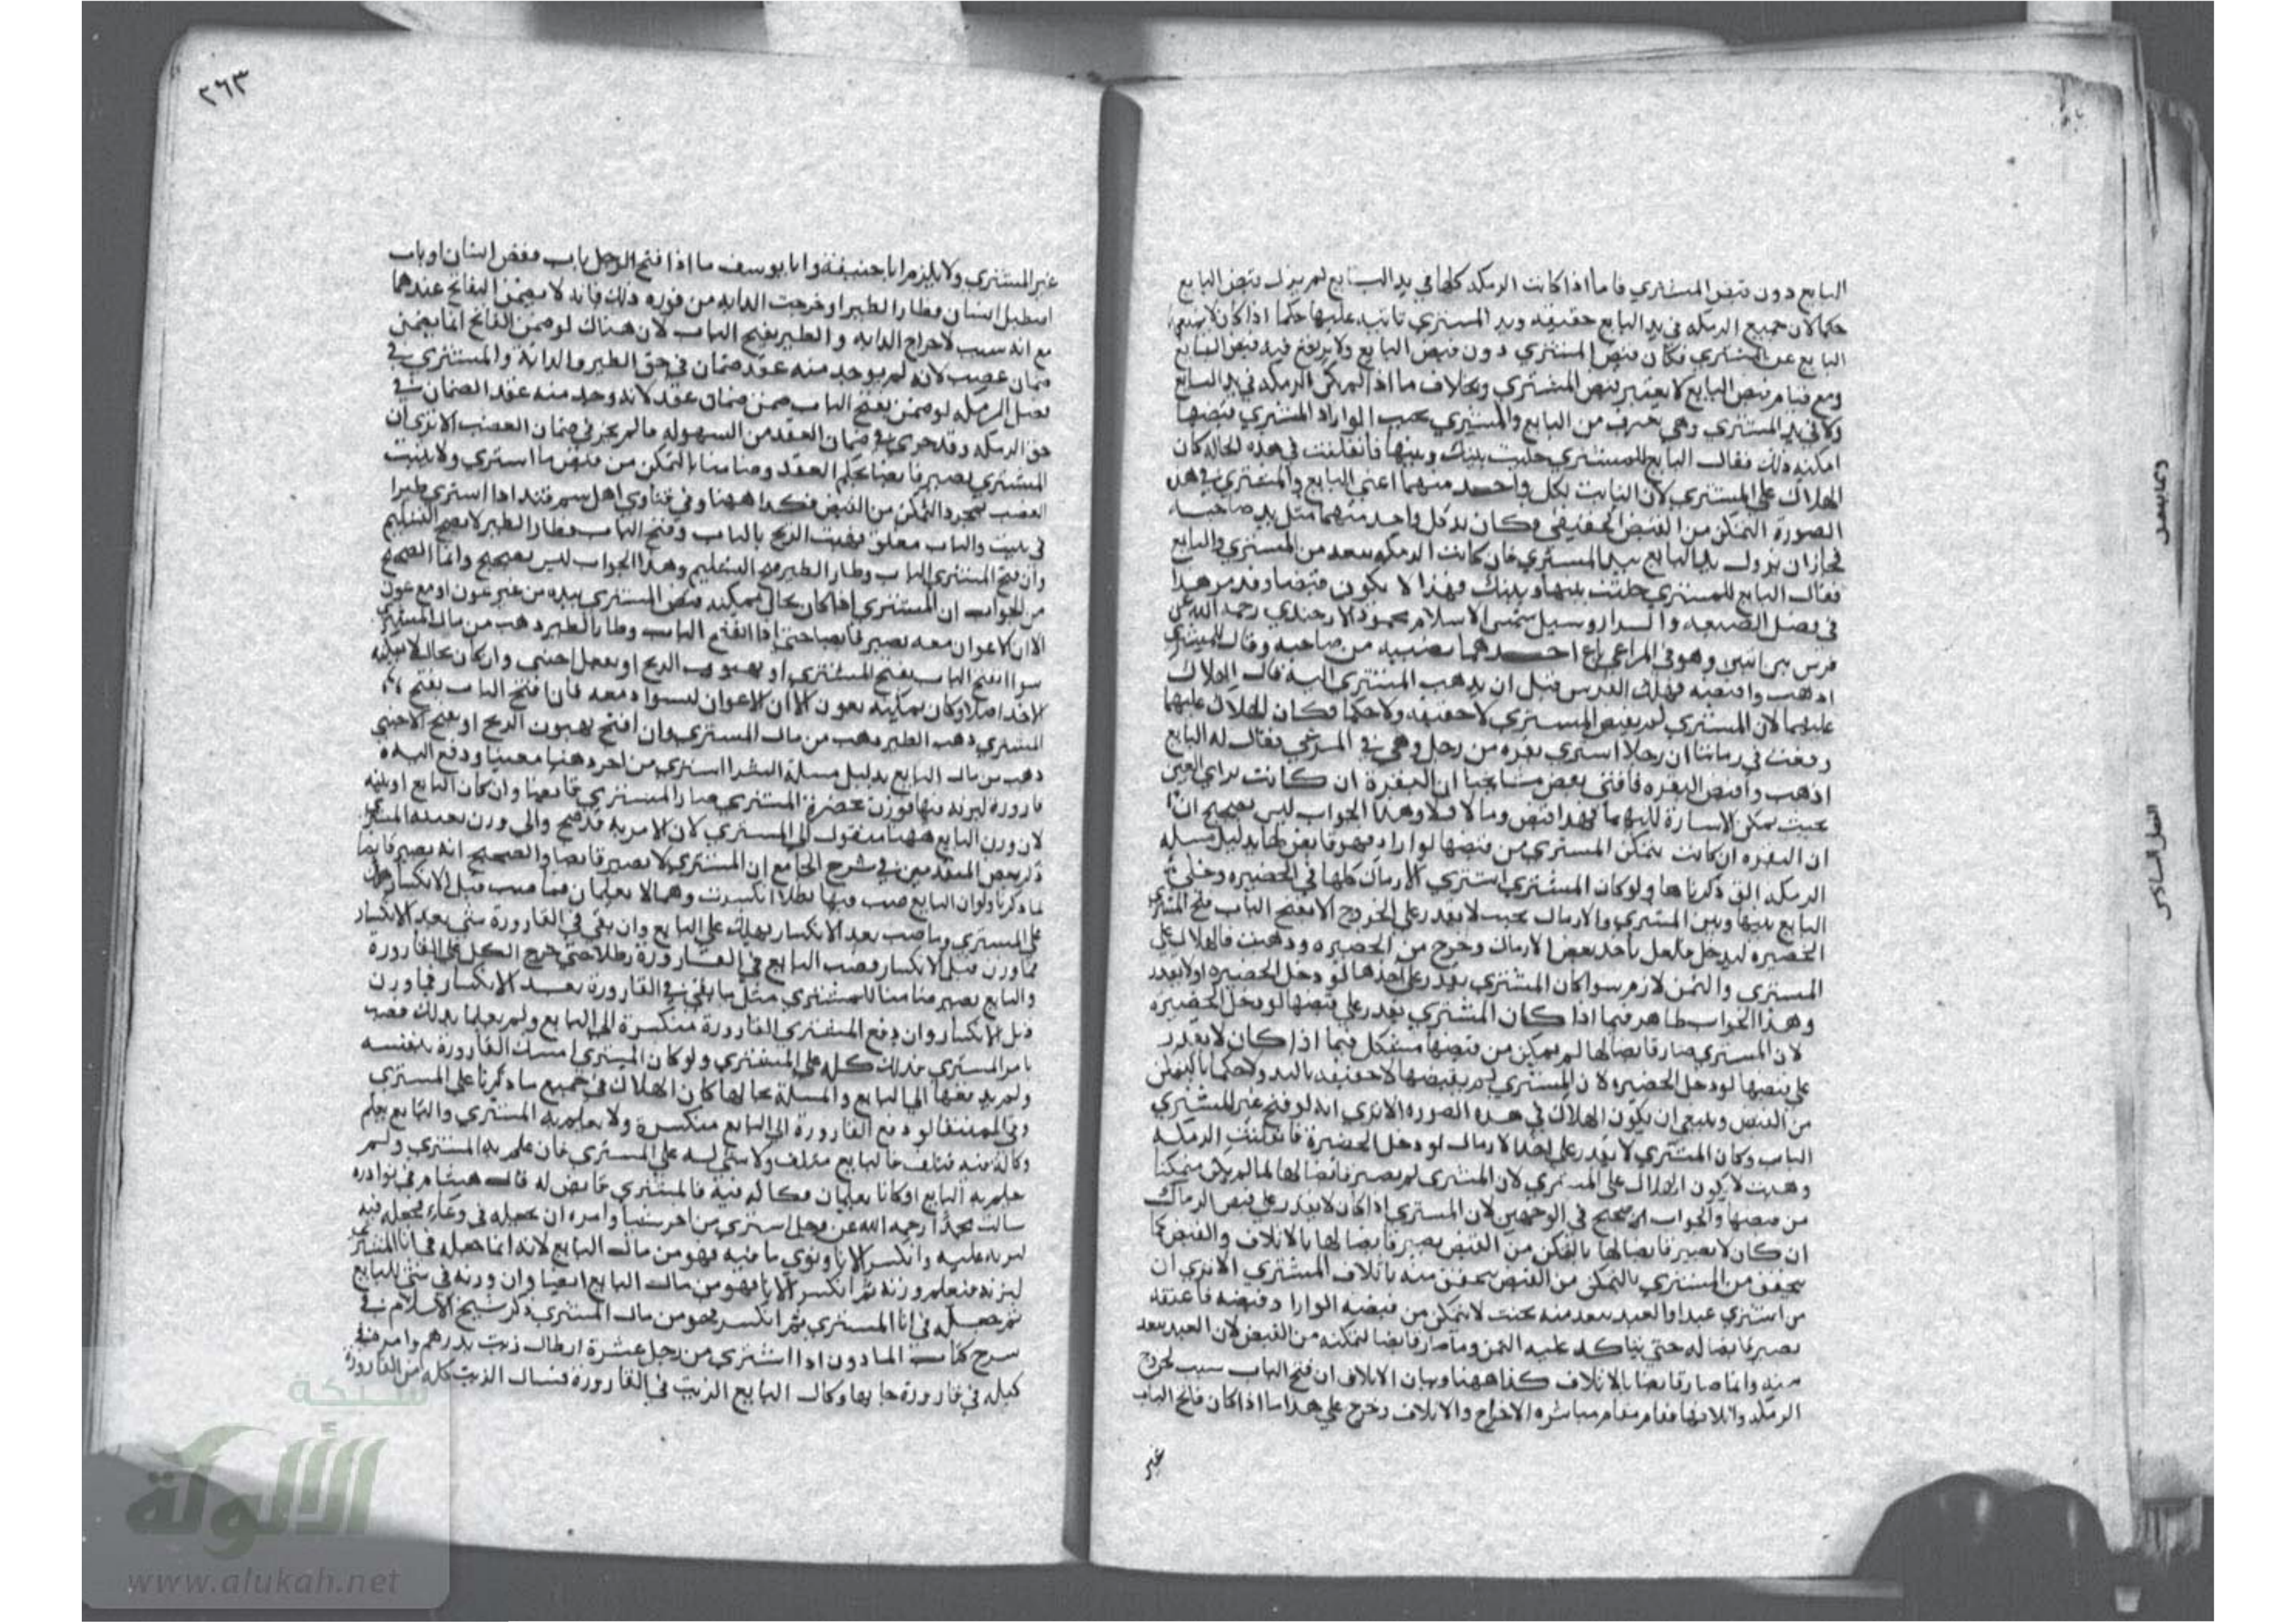 البايع دون قبض المشتري فاما اذا كانت الرمكة كلها في يد البايع لم يزل قبض البايع
حكما لان جميع الرمكة في يد البايع حقيقة ويد المشتري ثابتة عليها حكما اذا كان لا يمنعه
البايع عن المشتري فكان قبض المشتري دون قبض البايع ولا يرتفع فيه قبض البايع
ومع قيام قبض البايع لا يعتبر قبض المشتري وبخلاف ما اذا لم يكن الرمكة في يد البايع
ولا في يد المشتري وهي بقرب من البايع والمشتري بحيث لو اراد المشتري قبضها
امكنه ذلك فقال البايع للمشتري خليت بينك وبينها فانفلتت في هذه الحالة كان
الهلاك على المشتري لان الثابت لكل واحد منهما اعني البايع والمشتري في هذه
الصورة التمكن من القبض الحقيقي وكان يد كل واحد منهما مثل يد صاحبه
فجاز ان يزول يد البايع بيد المشتري فان كانت الرمكة ببعد من المشتري والبايع
فقال البايع للمشتري خليت بينها وبينك فهذا لا يكون قبضا وقد مر هذا
في فصل الضيعة والدار وسيل شمس الاسلام محمود الاوزجندي رحمه الله عن
فرس بين اثنين وهو في المراعي باع احدهما نصيبه من صاحبه وقال للمشتري
اذهب واقبضه فهلك الفرس قبل ان يذهب المشتري اليه قال الهلاك
عليهما لان المشتري لم يقبض المشترى لا حقيقة ولا حكما فكان الهلاك عليهما
وقعت في زماننا ان رجلا اشترى بقرة من رجل وهي في المرعى فقال له البايع
اذهب واقبض البقرة فافتى بعض مشايخنا ان البقرة ان كانت براي العين
بحيث يمكن الاشارة اليها فهذا قبض وما لا فلا وهذا الجواب ليس بصحيح
ان البقرة ان كانت يتمكن المشتري من قبضها لو اراد فهو قابض لها بدليل مسلة
الرمكة التي ذكرناها ولو كان المشتري اشترى الارماك كلها في الحضيرة وخلى
البايع بينها وبين المشتري والارماك بحيث لا يقدر على الخروج الا بفتح الباب ففتح المشتري
الحضيرة ليدخل بعض الارماك وخرج من الحضيرة وذهبت فالهلاك على
المشتري والثمن لازم سوا كان المشتري يقدر على اخذها لو دخل الحضيرة او لا يقدر
وهذا الجواب ظاهر فيما اذا كان المشتري يقدر على قبضها لو دخل الحضيرة
لان المشتري صار قابضا لها مشكل فيما اذا كان لا يقدر
على قبضها لو دخل الحضيرة لان المشتري لم يقبضها لا حقيقة باليد ولا حكما بالتمكن
من القبض وينبغي ان يكون الهلاك في هذه الصورة الا ترى انه لو فتح غير المشتري
الباب وكان المشتري لا يقدر على اخذ الارماك لو دخل الحضيرة فانفلتت الرمكة
وذهبت لا يكون الهلاك على المشتري لان المشتري لم يصر قابضا لها لما لم يكن متمكنا
من قبضها والجواب صحيح في الوجهين لان المشتري اذا كان لا يقدر على قبض الرماك
ان كان لا يصير قابضا لها بالتمكن من القبض يصير قابضا لها بالاتلاف والقبض كما
يتحقق من المشتري بالتمكن من القبض يتحقق منه باتلاف المشترى الا ترى ان
من اشترى عبدا والعبد ببعد منه بحيث لا يتمكن من قبضه لو اراد قبضه فاعتقه
يصير قابضا له حتى يتاكد عليه الثمن وما صار قابضا لتمكنه من القبض لان العبد ببعد
منه وانما صار قابضا بالاتلاف كذا ههنا وبيان الاتلاف ان فتح الباب سبب لخروج
الرمكة واتلافها فقام مقام مباشرة الاخراج والاتلاف وخرج على هذا ما اذا كان فاتح الباب
غير
وما يتصل
الفصل السادس
٢٦٣
غير المشتري ولا يلزم ابا حنيفة وابا يوسف ما اذا فتح الرجل باب قفص انسان او باب
اسطبل انسان فطار الطير او خرجت الدابة من فوره ذلك فانه لا يضمن الفاتح عندهما
مع انه سبب لاخراج الدابة والطير بفتح الباب لان هناك لو ضمن الفاتح انما يضمن
ضمان غصب لانه لم يوجد منه عقد ضمان في حق الطير والدابة والمشتري في
فصل الرمكة لو ضمن بفتح الباب ضمن ضمان عقد لانه وجد منه عقد الضمان في
حق الرمكة وقد جرى في ضمان العقد من السهولة ما لم يجز في ضمان الغصب الا ترى ان
المشتري يصير قابضا بحكم العقد وضامنا بالتمكن من قبض ما اشترى ولا يثبت
الغصب بمجرد التمكن من القبض فكذا ههنا وفي فتاوى اهل سمرقند اذا اشترى طيرا
في بيت والباب مغلق فهبت الريح بالباب وفتح الباب وطار الطير لا يصح التسليم
وان فتح المشتري الباب وطار الطير صح التسليم وهذا الجواب ليس بصحيح وانما الصحيح
من الجواب ان المشتري اذا كان بحال يمكنه قبض المشترى بيده من غير عون او مع عون
الا ان الاعوان معه يصير قابضا حتى اذا انفتح الباب وطار الطير ذهب من مال المشتري
سوا انفتح الباب بفتح المشتري او بهبوب الريح او بفعل اجنبي وان كان بحال لا يمكنه
الاخذ اصلا او كان يمكنه بعون الا ان الاعوان ليسوا معه فان انفتح الباب بفتح
المشتري ذهب الطير ذهب من مال المشتري وان انفتح بهبوب الريح او بفتح الاجنبي
ذهب من مال البايع بدليل مسلة البشر اشترى من اخر دهنا معينا ودفع اليه
قارورة ليزنه فيها فوزن بحضرة المشتري صار المشتري قابضا وان كان البايع
لان وزن البايع ههنا منقول الى المشتري لان الامر به قد صح والى وزن بعينه المشتري
ذكر بعض المتقدمين في شرح الجامع ان المشتري لا يصير قابضا والصحيح انه يصير قابضا
لما ذكرنا ولو ان البايع صب فيها رطلا انكسرت وهما لا يعلمان فما صب قبل الانكسار فهلك
على المشتري وما صب بعد الانكسار يهلك على البايع وان بقي في القارورة شي بعد الانكسار
مما وزن قبل الانكسار فصب البايع في القارورة رطلا حتى خرج الكل من القارورة
والبايع يصير ضامنا للمشتري مثل ما بقي في القارورة بعد الانكسار فيما وزن
قبل الانكسار وان دفع المشتري القارورة منكسرة الى البايع ولم يعلما بذلك فصب
بامر المشتري فذلك كله على المشتري ولو كان المشتري امسك القارورة بنفسه
ولم يدفعها الى البايع والمسلة بحالها كان الهلاك في جميع ما ذكرنا على المشتري
وفي المنتقى لو دفع القارورة الى البايع منكسرة ولا يعلم به المشتري والبايع يعلم
وكاله فيه فتلف فالبايع متلف ولا شي له على المشتري فان علم به المشتري ولم
يعلم به البايع او كانا يعلمان فكاله فيه فالمشتري قابض له قال هشام في نوادره
سالت محمدا رحمه الله عن رجل اشترى من اخر شيا وامره ان يجعله في وعاء فجعل فيه
ليزنه عليه وانكسر الانا وتوي ما فيه فهو من مال البايع لانه انما جعله في انا المشتري
ليزنه فيعلم وزنه ثم انكسر الانا فهو من مال البايع ايضا وان وزنه في شي للبايع
ثم جعله في انا المشتري ثم انكسر فهو من مال المشتري ذكر شيخ الاسلام في
شرح كتاب الماذون اذا اشترى من رجل عشرة ارطال زيت بدرهم وامره
كيله في قارورة جا بها وكال البايع الزيت في القارورة فسال الزيت كله من القارورة
شبكة
الألوكة
www.alukah.net